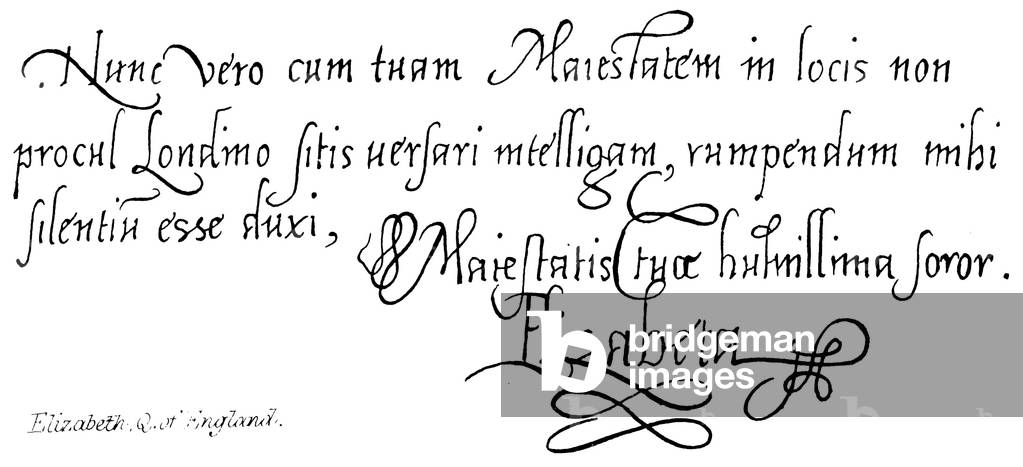 Nunc vero cum tuam Maiestatem in locis non
procul Londino sitis uersari intelligam, rumpendum mihi
silentiũ esse duxi,
Maiestatis tuæ humillima soror.
Elizabeta
bridgeman
images
Elizabeth. Q. of England.